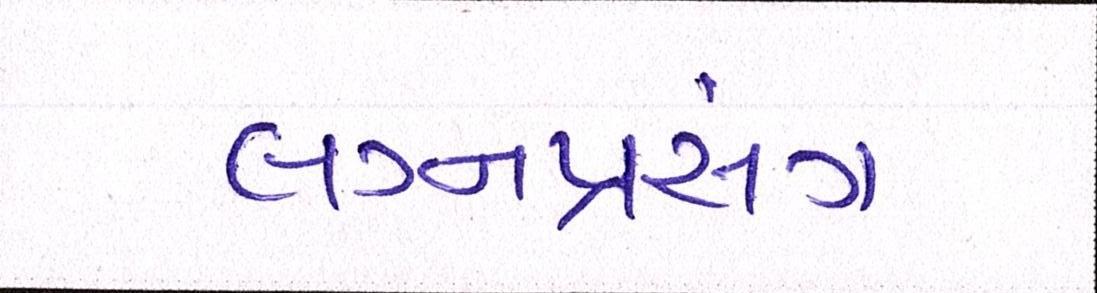 લગ્નપ્રસંગ